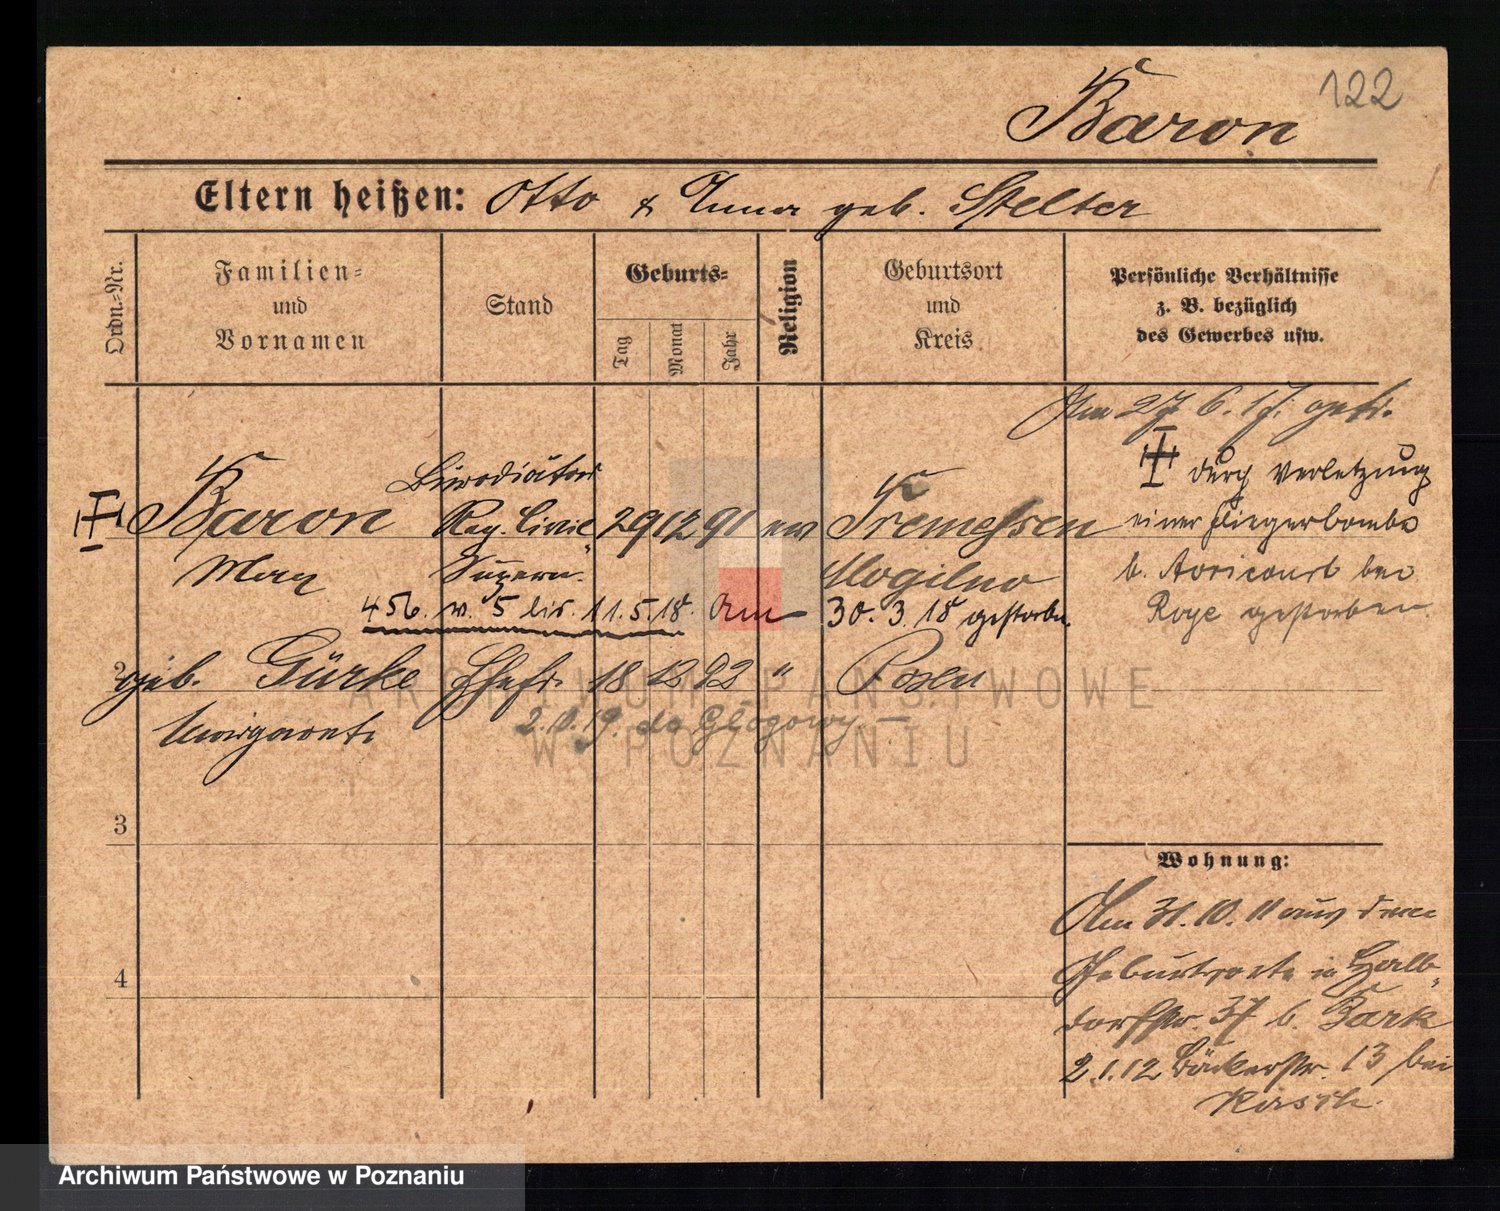 122
Baron
Eltern heißen: Otto & Anna geb. Stelter
Ordn.-Nr.
Familien-
und
Vornamen
Stand
Geburts-
Tag
Monat
Jahr
Religion
Geburtsort
und
Kreis
Persönliche Verhältnisse
z. B. bezüglich
des Gewerbes usw.
Am 27. 6. 17. getr.
Bürodiätar
durch Verletzung
Baron Reg. Civil 29 12 91 ev Tremessen einer Fliegerbombe
Max Supern. Mogilno b. Avricourt bei
456. v. 5 bis 11.5.18. Am 30. 3. 18 gestorben. Roye gestorben
2 geb. Gürke Ehefr. 18 12 92 " Posen
Margarete 2. 9. 19. do Głogowy —
3
4
Wohnung:
Am 31. 10. 11 aus dem
Geburtsorte in Halb-
dorfstr. 37 b. Bark
2.1.12 Bäckerstr. 13 bei
Rasch.
ARCHIWUM PAŃSTWOWE
W POZNANIU
Archiwum Państwowe w Poznaniu